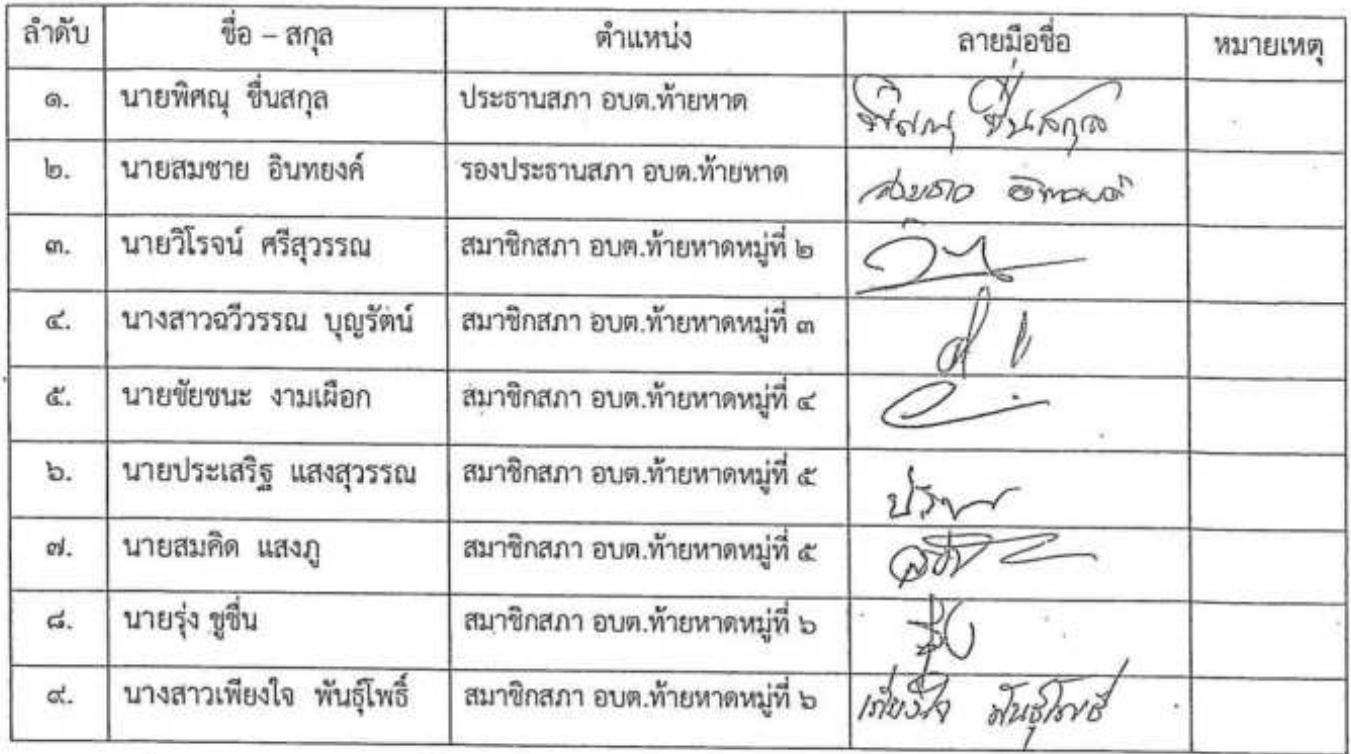 ลำดับ ชื่อ – สกุล ตำแหน่ง ลายมือชื่อ หมายเหตุ
๑. นายพิศณุ ชื่นสกุล ประธานสภา อบต.ท้ายหาด พิศณุ ชื่นสกุล
๒. นายสมชาย อินทยงค์ รองประธานสภา อบต.ท้ายหาด สมชาย อินทยงค์
๓. นายวิโรจน์ ศรีสุวรรณ สมาชิกสภา อบต.ท้ายหาดหมู่ที่ ๒
๔. นางสาวฉวีวรรณ บุญรัตน์ สมาชิกสภา อบต.ท้ายหาดหมู่ที่ ๓
๕. นายชัยชนะ งามเผือก สมาชิกสภา อบต.ท้ายหาดหมู่ที่ ๔
๖. นายประเสริฐ แสงสุวรรณ สมาชิกสภา อบต.ท้ายหาดหมู่ที่ ๕
๗. นายสมคิด แสงภู สมาชิกสภา อบต.ท้ายหาดหมู่ที่ ๕
๘. นายรุ่ง ชูชื่น สมาชิกสภา อบต.ท้ายหาดหมู่ที่ ๖
๙. นางสาวเพียงใจ พันธุ์โพธิ์ สมาชิกสภา อบต.ท้ายหาดหมู่ที่ ๖ เพียงใจ พันธุ์โพธิ์